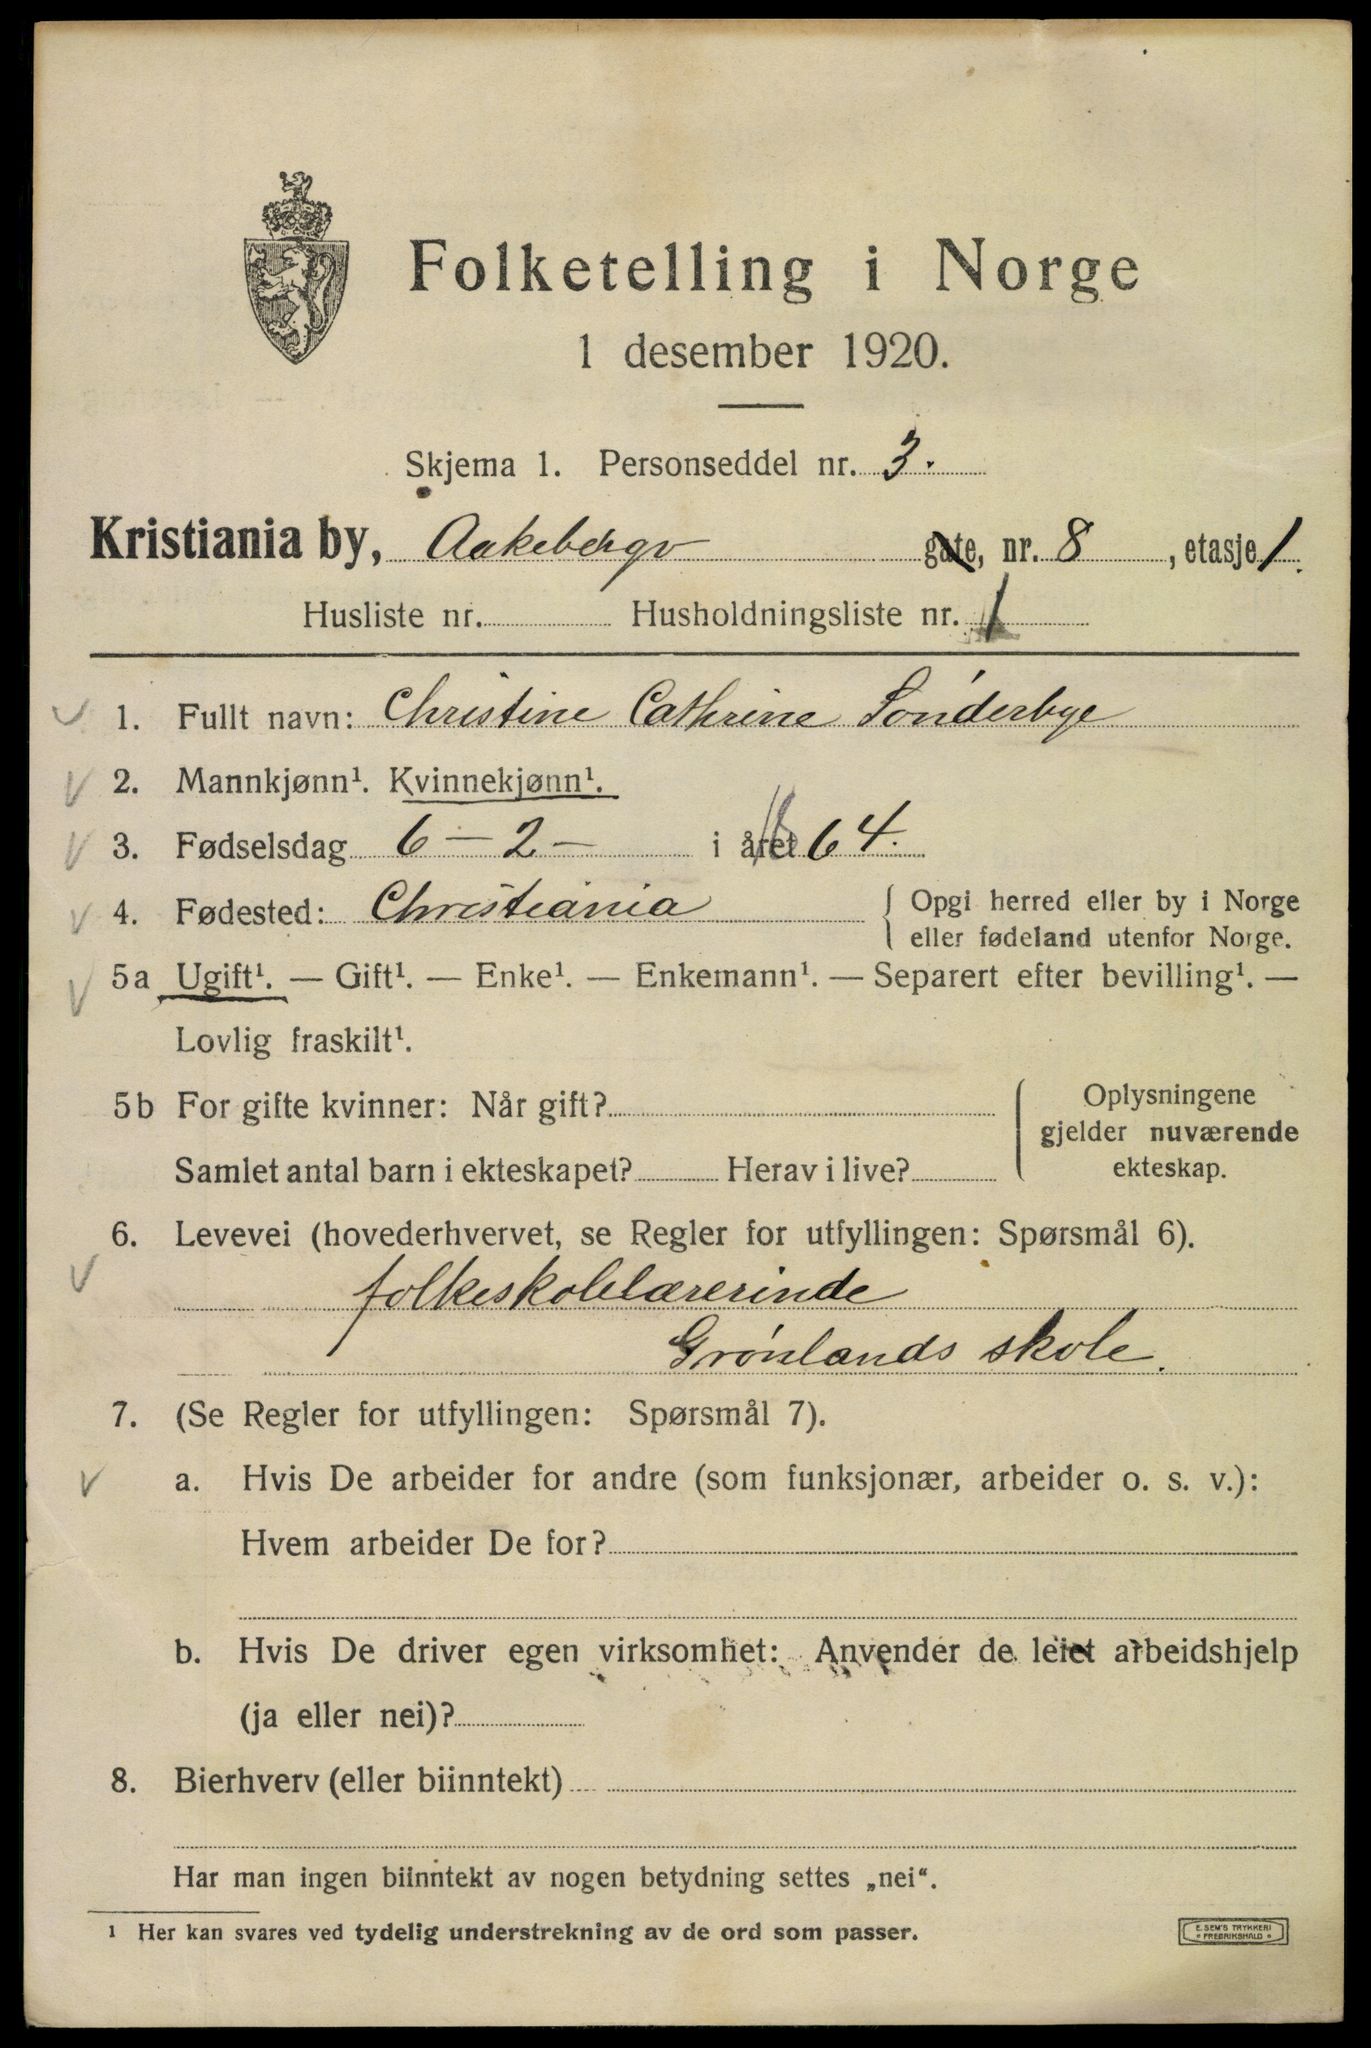 Folketelling i Norge
1 desember 1920.
Skjema 1. Personseddel nr. 3.
Kristiania by, Aakebergv gate, nr. 8, etasje 1.
Husliste nr. Husholdningsliste nr. 1
1. Fullt navn: Christine Cathrine Sönderbye
2. Mannkjønn¹. Kvinnekjønn¹.
3. Fødselsdag 6-2- i året 1864.
4. Fødested: Christiania { Opgi herred eller by i Norge
eller fødeland utenfor Norge.
5a Ugift¹. — Gift¹. — Enke¹. — Enkemann¹. — Separert efter bevilling¹. —
Lovlig fraskilt¹.
5b For gifte kvinner: Når gift? { Oplysningene
gjelder nuværende
Samlet antal barn i ekteskapet? Herav i live? ekteskap.
6. Levevei (hovederhvervet, se Regler for utfyllingen: Spørsmål 6).
folkeskolelærerinde
Grönlands skole.
7. (Se Regler for utfyllingen: Spørsmål 7).
a. Hvis De arbeider for andre (som funksjonær, arbeider o. s. v.):
Hvem arbeider De for?
b. Hvis De driver egen virksomhet: Anvender de leiet arbeidshjelp
(ja eller nei)?
8. Bierhverv (eller biinntekt)
Har man ingen biinntekt av nogen betydning settes „nei“.
¹ Her kan svares ved tydelig understrekning av de ord som passer.
E. SEM'S TRYKKERI
* FREDRIKSHALD *